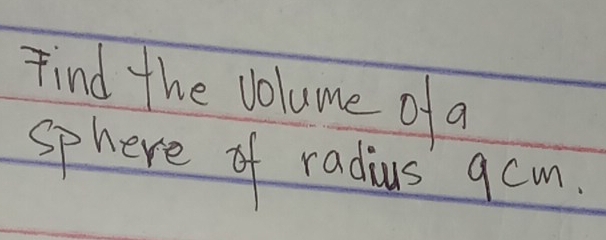 Find the volume of a
sphere of radius 9cm.